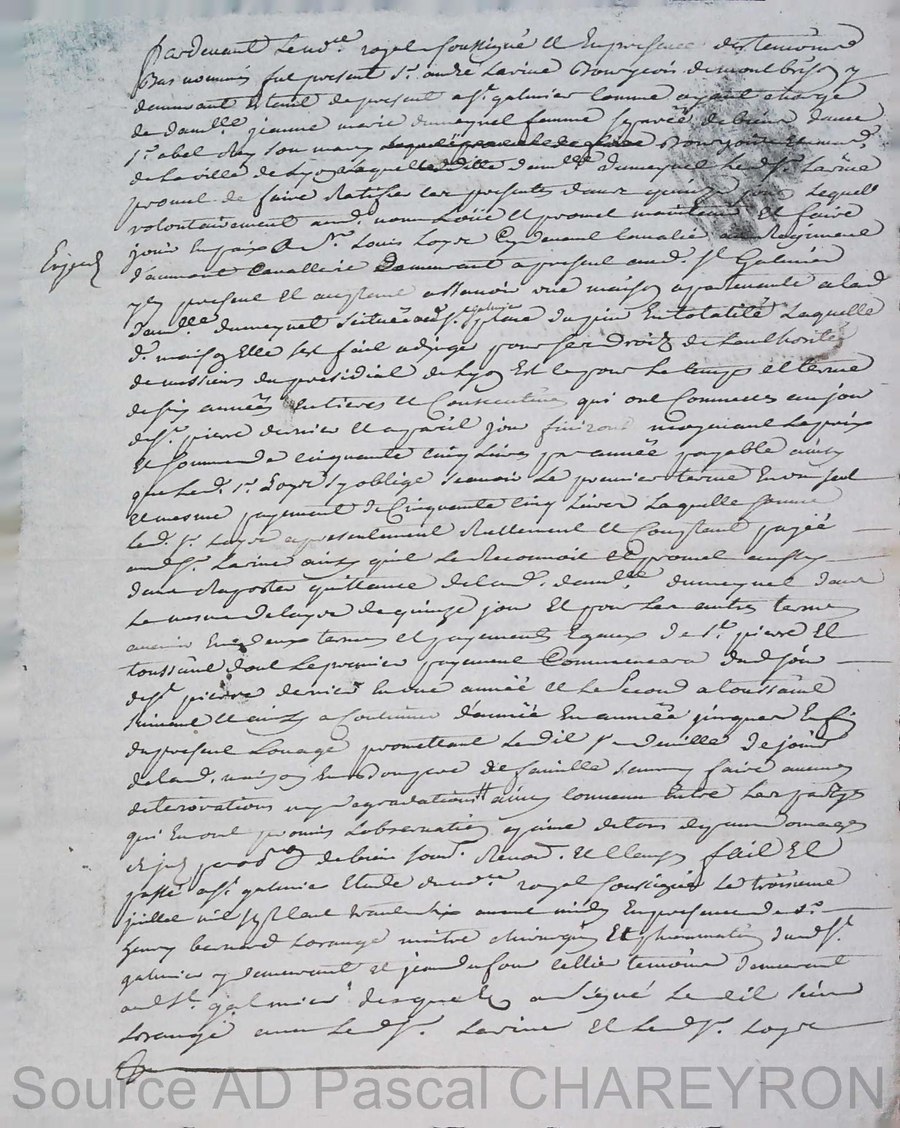 Pardevant le no.re royal soussigné et En presence des temoins
Bas nommés fut present s.r andré Larine Bourgeois de montbrison y
demeurant Estant de present a s.t galmier comme ayant charge
de dam.lle jeanne marie dumeynel femme separée de biens dans
s.r abel Rey son mary Bourgeois
de la ville de Lyon laquelle dam.lle dumeynel Led. s.r Larine
promet de faire Ratifier ces presentes dans quinze jour Lequel
volontairement aud. nom Loüe et promet maintenir Et faire
jouir En paix a s.r Louis Loyre Cy devant Cavalier au Regiment
Exped.
d'aumont Cavallerie Demeurant a present aud. s.t Galmier
present Et acceptant assavoir une maison apartenante a lad.
dam.lle dumeynel situèe aud. s.t galmier place du En totalité Laquelle
d. maison Elle s'est fait adjuger pour ses droits de L'authorité
de messieurs du presidial de Lyon Et ce pour Le temps et terme
de six années Entieres et Consecutives qui ont Commencé au jour
de s.t pierre dernier Et a pareil jour finiront moyenant Le prix
Et somme de cinquante cinq Livres par année payable ainsy
que Led. s.r Loyre s'y oblige scavoir Le premier terme En un seul
Et mesme payement de Cinquante Cinq Livres Laquelle somme
Led. s.r Loyre a presentement Réellement et Comptant payèe
aud. s.r Larine ainsy quil Le Reconnoit Et promet aussy
dans Raporter quittance de lad. dam.lle dumeynel dans
Le mesme delay de quinze jour Et pour Les autres termes
avenir En deux termes et payements Egaux de s.t pierre Et
toussaint dont Le premier payement Commencera dud. jour
de s.t pierre dernier En une année Et Le Second a toussaint
suivant Et ainsy a Continuer d'année En année jusques En fin
du present Louage promettant Le dit s.r de jouir
de lad. maison En bon pere de famille sans y faire aucunes
deteriorations ny degradations ainsy convenu Entre Les partyes
qui En ont promis L'observation a peine de tous depens domages
de biens soum. Renon. Et Clauses fait Et
passé a s.t galmier Etude dud. no.re royal soussigné Le troisieme
juillet mil sept cent trente six avant midy En presence de s.r
henry bernard Lorange maitre chirurgien Et dud. s.t
galmier y demeurant et jean dufour cellier temoins demeurant
aud. s.t galmier desquels a signé Le dit sieur
Lorange avec Led. s.r Larine Et Led. s.r Loyre
Source AD Pascal CHAREYRON